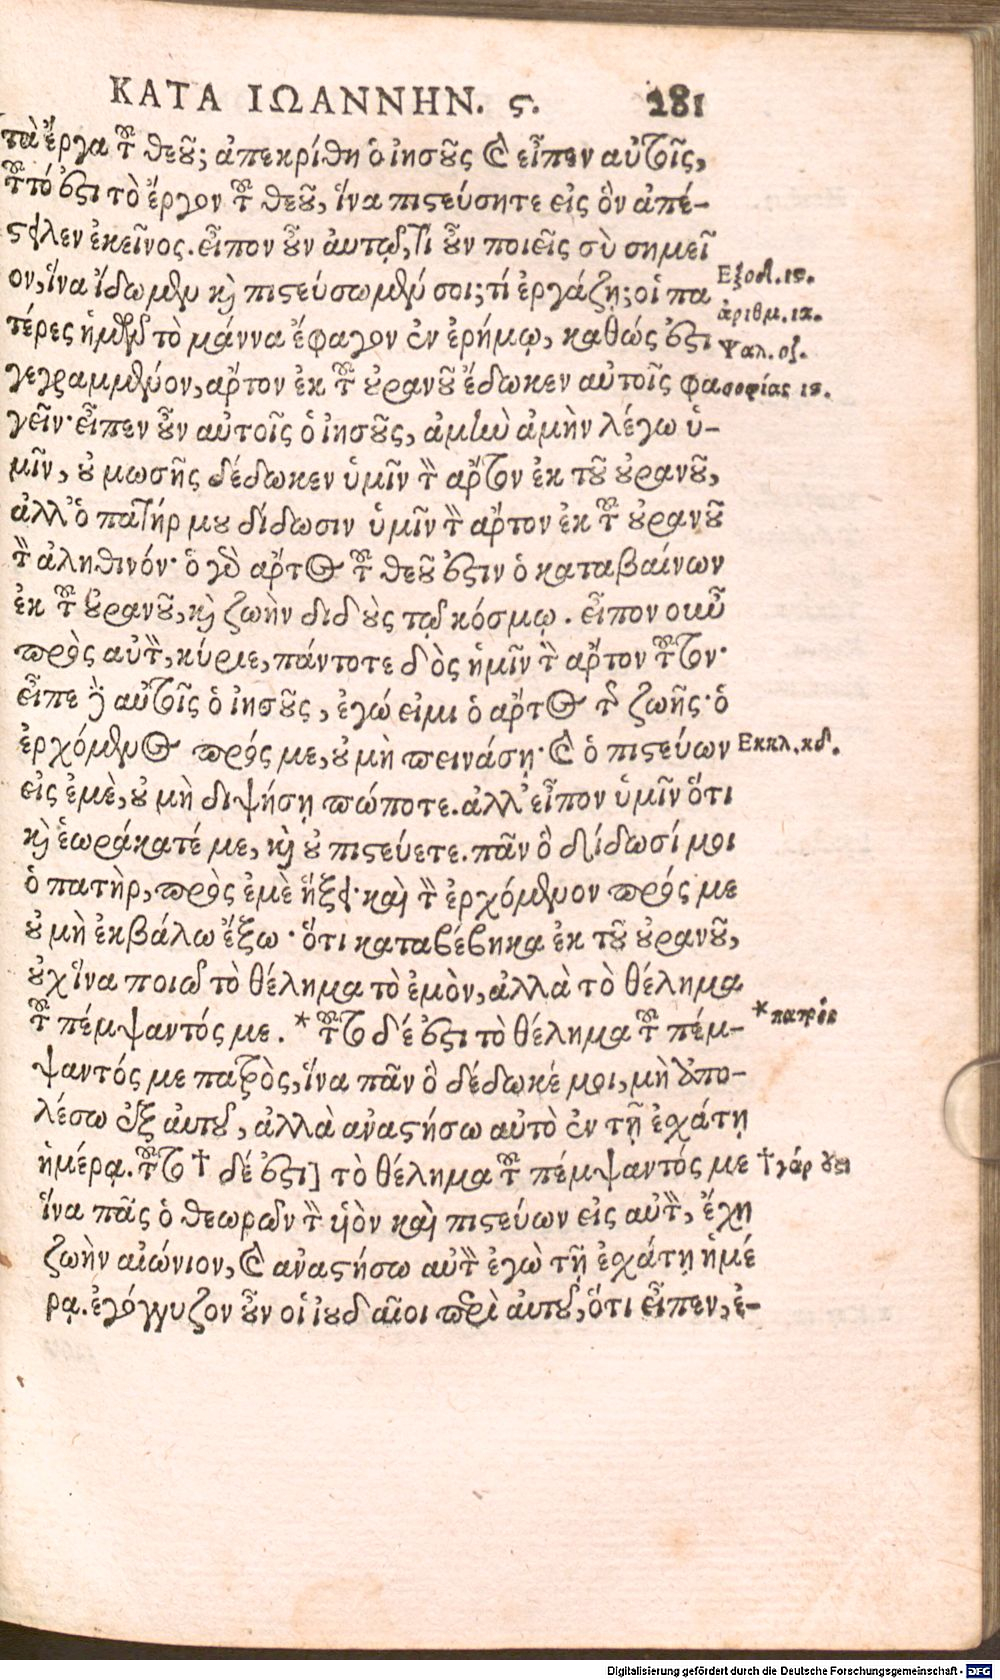 ΚΑΤΑ ΙΩΑΝΝΗΝ. ϛ. 281
τὰ ἔργα τοῦ θεοῦ; ἀπεκρίθη ὁ ἰησοῦς καὶ εἶπεν αὐτοῖς,
τοῦτό ἐστι τὸ ἔργον τοῦ θεοῦ, ἵνα πιστεύσητε εἰς ὃν ἀπέ-
στειλεν ἐκεῖνος. εἶπον οὖν αὐτῷ, τί οὖν ποιεῖς σὺ σημεῖ
ον, ἵνα ἴδωμεν καὶ πιστεύσωμέν σοι; τί ἐργάζῃ; οἱ πα
τέρες ἡμῶν τὸ μάννα ἔφαγον ἐν ἐρήμῳ, καθώς ἐστι
γεγραμμένον, ἄρτον ἐκ τοῦ οὐρανοῦ ἔδωκεν αὐτοῖς φα
γεῖν· εἶπεν οὖν αὐτοῖς ὁ ἰησοῦς, ἀμὴν ἀμὴν λέγω ὑ-
μῖν, οὐ μωσῆς δέδωκεν ὑμῖν τὸν ἄρτον ἐκ τοῦ οὐρανοῦ,
ἀλλ' ὁ πατήρ μου δίδωσιν ὑμῖν τὸν ἄρτον ἐκ τοῦ οὐρανοῦ
τὸν ἀληθινόν· ὁ γὰρ ἄρτος τοῦ θεοῦ ἐστιν ὁ καταβαίνων
ἐκ τοῦ οὐρανοῦ, καὶ ζωὴν διδοὺς τῷ κόσμῳ. εἶπον οὖν
πρὸς αὐτὸν, κύριε, πάντοτε δὸς ἡμῖν τὸν ἄρτον τοῦτον·
εἶπε δὲ αὐτοῖς ὁ ἰησοῦς, ἐγώ εἰμι ὁ ἄρτος τῆς ζωῆς· ὁ
ἐρχόμενος πρός με, οὐ μὴ πεινάσῃ· καὶ ὁ πιστεύων
εἰς ἐμὲ, οὐ μὴ διψήσῃ πώποτε. ἀλλ' εἶπον ὑμῖν ὅτι
καὶ ἑωράκατέ με, καὶ οὐ πιστεύετε. πᾶν ὃ δίδωσί μοι
ὁ πατὴρ, πρὸς ἐμὲ ἥξει· καὶ τὸν ἐρχόμενον πρός με
οὐ μὴ ἐκβάλω ἔξω· ὅτι καταβέβηκα ἐκ τοῦ οὐρανοῦ,
οὐχ ἵνα ποιῶ τὸ θέλημα τὸ ἐμὸν, ἀλλὰ τὸ θέλημα
τοῦ πέμψαντός με. * τοῦτο δέ ἐστι τὸ θέλημα τοῦ πέμ-
ψαντός με πατρὸς, ἵνα πᾶν ὃ δέδωκέ μοι, μὴ ἀπο-
λέσω ἐξ αὐτοῦ, ἀλλὰ ἀναστήσω αὐτὸ ἐν τῇ ἐσχάτῃ
ἡμέρᾳ. τοῦτο † δέ ἐστι] τὸ θέλημα τοῦ πέμψαντός με
ἵνα πᾶς ὁ θεωρῶν τὸν υἱὸν καὶ πιστεύων εἰς αὐτὸν, ἔχῃ
ζωὴν αἰώνιον, καὶ ἀναστήσω αὐτὸν ἐγὼ τῇ ἐσχάτῃ ἡμέ
ρᾳ. ἐγόγγυζον οὖν οἱ ἰουδαῖοι περὶ αὐτοῦ, ὅτι εἶπεν, ἐ-
Εξοδ. ιϛ.
ἀριθμ. ια.
Ψαλ. οζ.
σοφίας ιϛ.
Εκκλ. κδ.
* πατρός
† γάρ ἐστι
Digitalisierung gefördert durch die Deutsche Forschungsgemeinschaft - DFG